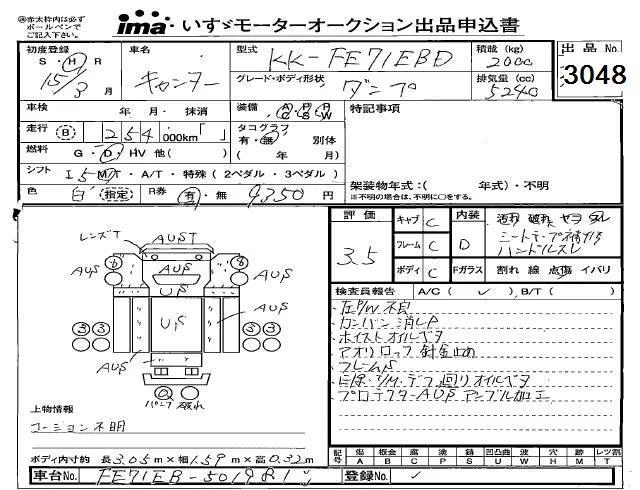 ㊟赤太枠内は必ず
ボールペンで
ご記入下さい。
ima いすゞモーターオークション出品申込書
初度登録 S・H・R 15/3 月
車名 キャンター
型式 KK-FE71EBD
グレード・ボディ形状 ダンプ
積載 (kg) 2000
排気量 (cc) 5240
出品 No. 3048
車検 年 月・抹消
装備 AC PS PW
特記事項
走行 B 254 000km「 」
タコグラフ 有・無 別体
( 年 月)
燃料 G・D・HV 他( )
シフト I 5 MT・A/T・特殊 (2ペダル・3ペダル)
色 白 指定 R券 有・無 9350 円
架装物年式:( 年式)・不明
※不明の場合は、不明に○をする。
評価 3.5
キャブ C 内装 汚れ 破れ ヤヨ タレ
フレーム C D シートテープ補修 ハンドルスレ
ボディ C Fガラス 割れ 線 点傷 イバリ
検査員報告 A/C( ✓ )、B/T( )
左P/W不良
カンバン消しP
ホイストオイルベタ
アオリロック針金止め
フレームS
E/除・T/M・デフ廻りオイルベタ
プロテクターAUS アングル加工
レンズT AUST
AUS AUS AUS
US
US AUS AUS
③③ ③③
AUS
バンプ 破れ
上物情報
コーション不明
ボディ内寸約 長3.05m×幅1.59m×高0.32m
記号 傷A 板金B 腐C 塗P 錆S 凹凸曲U 波W 穴H 痕M レツ割T
車台No. FE71EB-501981
登録No.